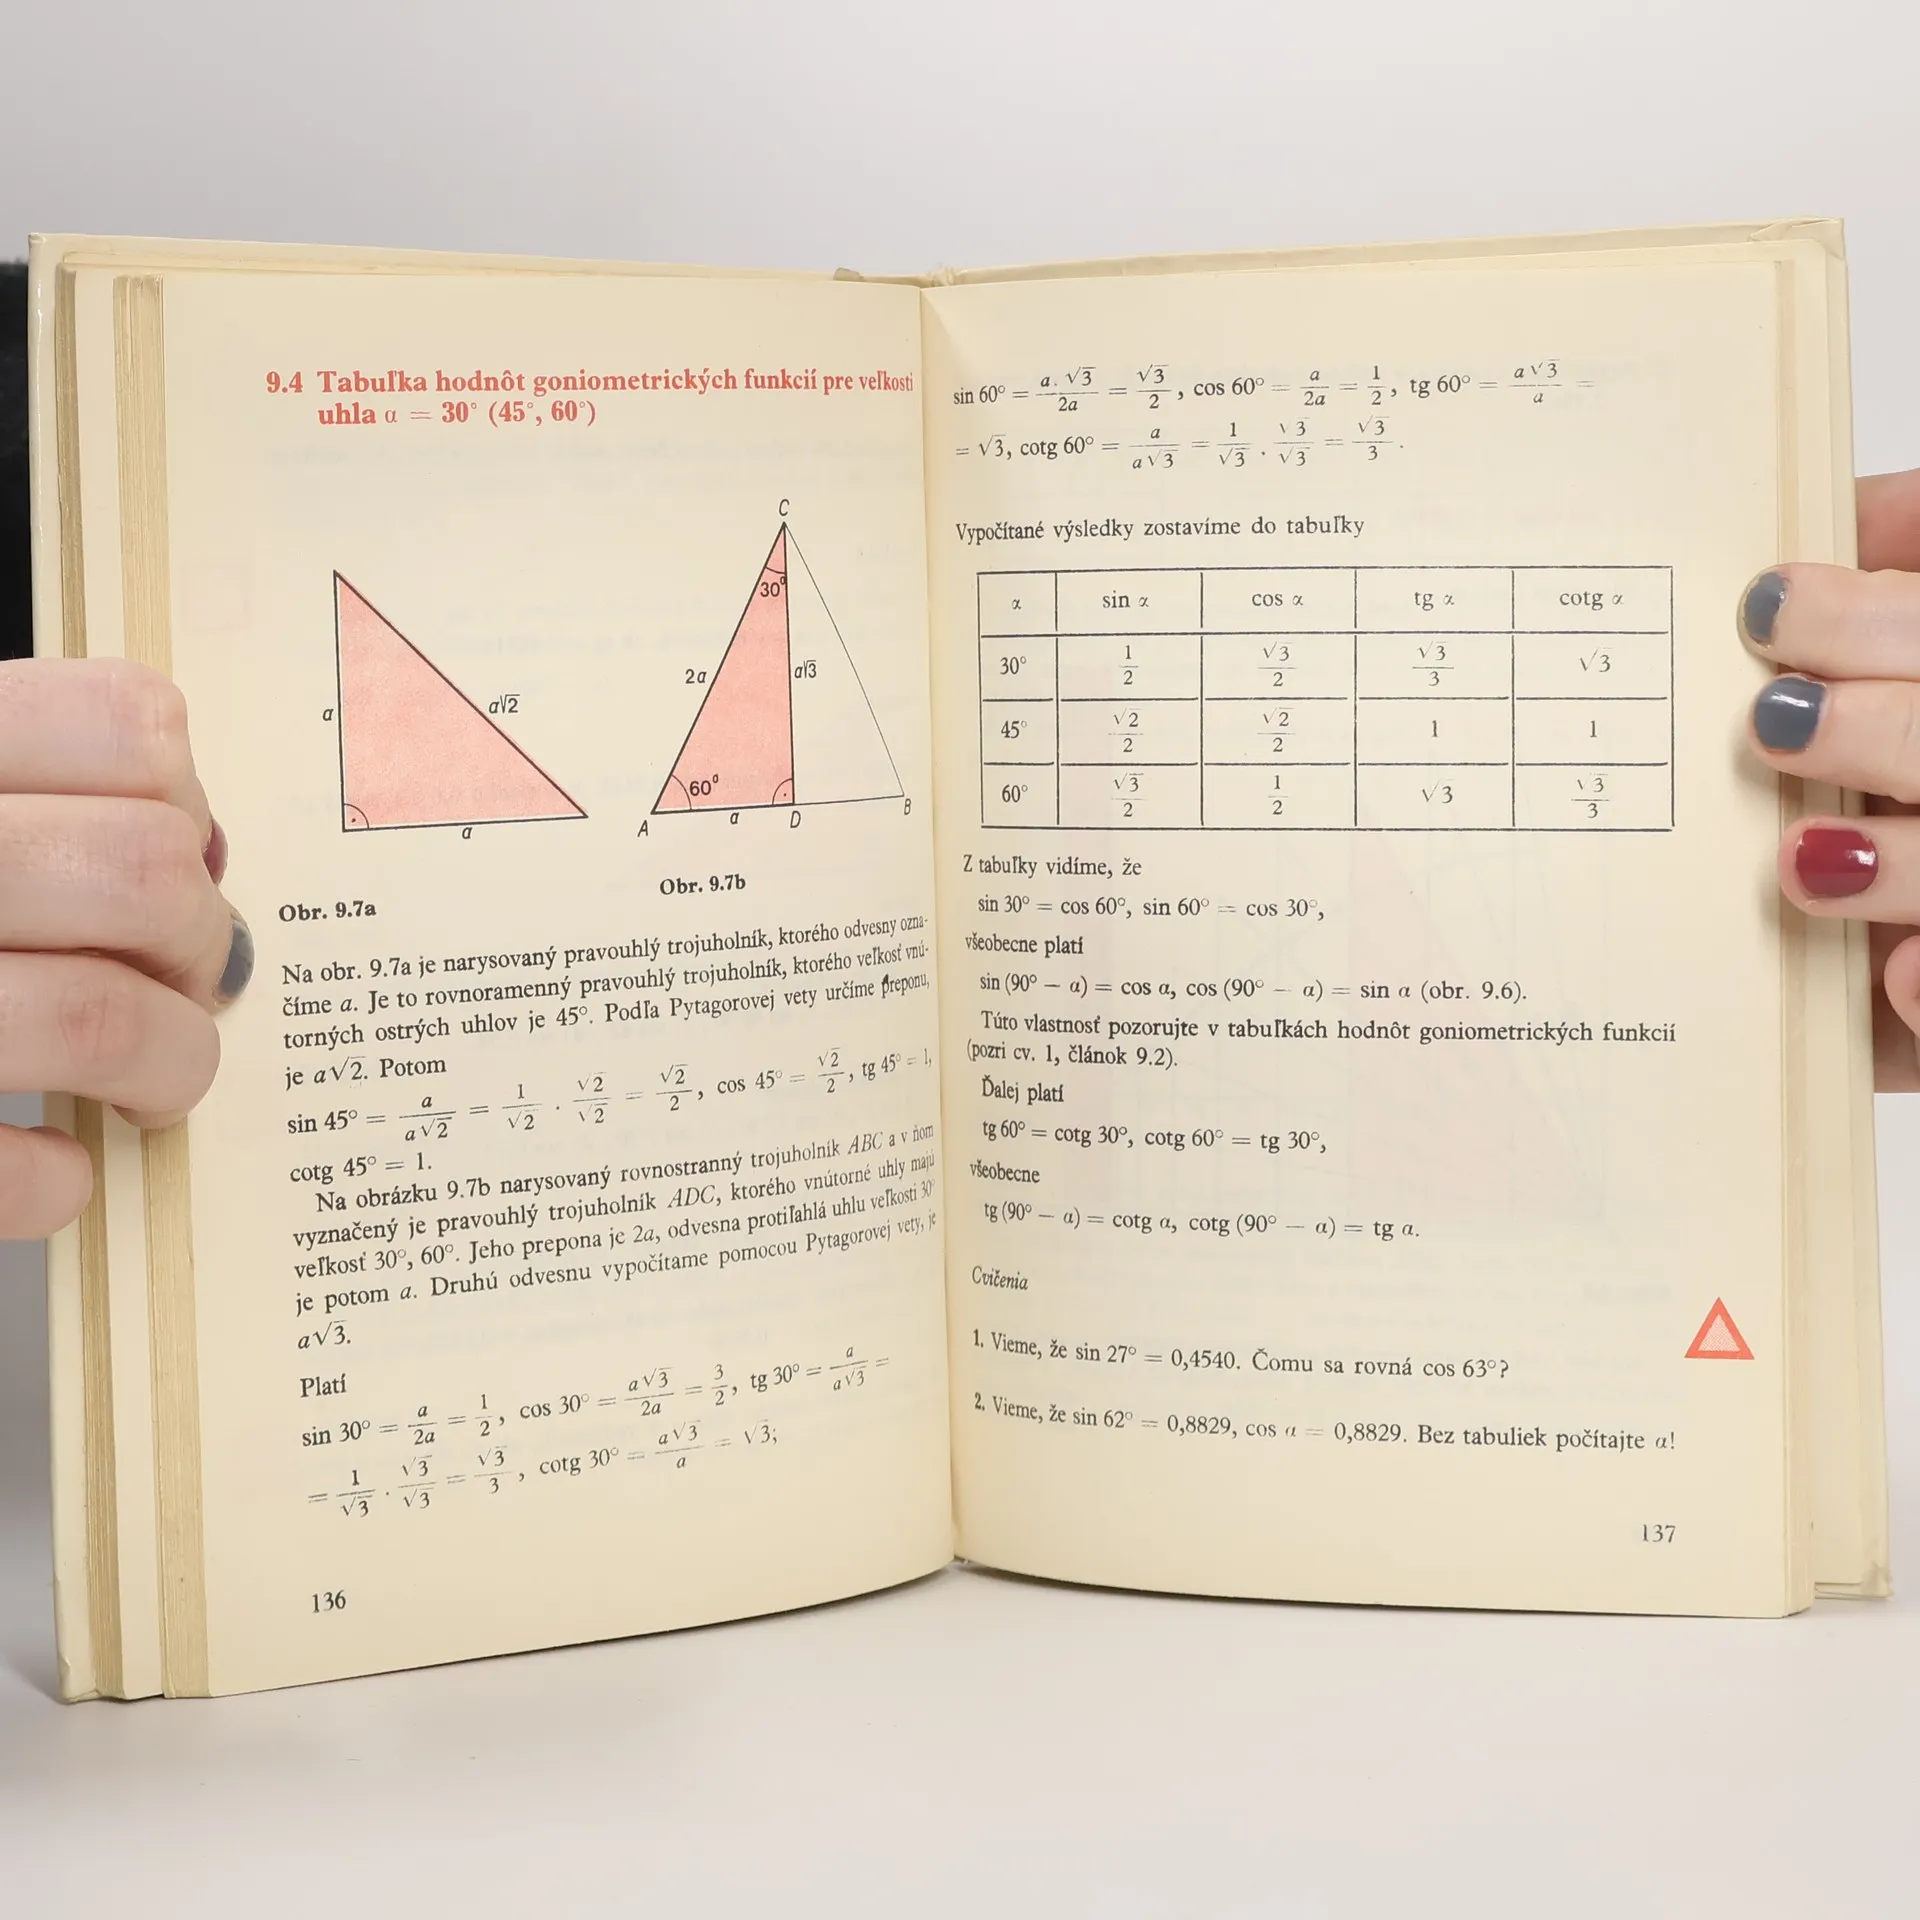 9.4 Tabuľka hodnôt goniometrických funkcií pre veľkosti
uhla α = 30° (45°, 60°)
a
a√2
a
C
30°
2a
a√3
60°
A
a
D
B
Obr. 9.7a
Obr. 9.7b
Na obr. 9.7a je narysovaný pravouhlý trojuholník, ktorého odvesny ozna-
číme a. Je to rovnoramenný pravouhlý trojuholník, ktorého veľkosť vnú-
torných ostrých uhlov je 45°. Podľa Pytagorovej vety určíme preponu,
je a√2. Potom
sin 45° = a/(a√2) = 1/√2 . √2/√2 = √2/2, cos 45° = √2/2, tg 45° = 1,
cotg 45° = 1.
Na obrázku 9.7b narysovaný rovnostranný trojuholník ABC a v ňom
vyznačený je pravouhlý trojuholník ADC, ktorého vnútorné uhly majú
veľkosť 30°, 60°. Jeho prepona je 2a, odvesna protiľahlá uhlu veľkosti 30°
je potom a. Druhú odvesnu vypočítame pomocou Pytagorovej vety, je
a√3.
Platí
sin 30° = a/2a = 1/2, cos 30° = a√3/2a = 3/2, tg 30° = a/(a√3) =
= 1/√3 . √3/√3 = √3/3, cotg 30° = a√3/a = √3;
136
sin 60° = a.√3/2a = √3/2, cos 60° = a/2a = 1/2, tg 60° = a√3/a =
= √3, cotg 60° = a/(a√3) = 1/√3 . √3/√3 = √3/3.
Vypočítané výsledky zostavíme do tabuľky
α sin α cos α tg α cotg α
30° 1/2 √3/2 √3/3 √3
45° √2/2 √2/2 1 1
60° √3/2 1/2 √3 √3/3
Z tabuľky vidíme, že
sin 30° = cos 60°, sin 60° = cos 30°,
všeobecne platí
sin (90° — α) = cos α, cos (90° — α) = sin α (obr. 9.6).
Túto vlastnosť pozorujte v tabuľkách hodnôt goniometrických funkcií
(pozri cv. 1, článok 9.2).
Ďalej platí
tg 60° = cotg 30°, cotg 60° = tg 30°,
všeobecne
tg (90° — α) = cotg α, cotg (90° — α) = tg α.
Cvičenia
1. Vieme, že sin 27° = 0,4540. Čomu sa rovná cos 63°?
2. Vieme, že sin 62° = 0,8829, cos α = 0,8829. Bez tabuliek počítajte α!
137